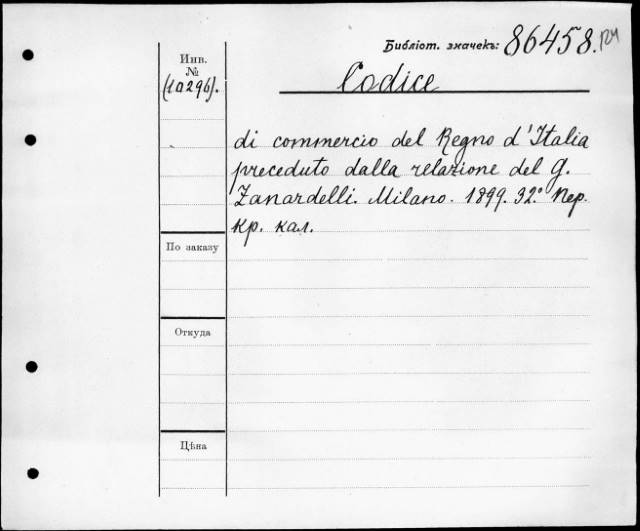 Библіот. значекъ: 86458.
Инв.
№
(10296).
Codice
di commercio del Regno d'Italia
preceduto dalla relazione del G.
Zanardelli. Milano. 1899. 32.° Пер.
кр. кал.
По заказу
Откуда
Цѣна